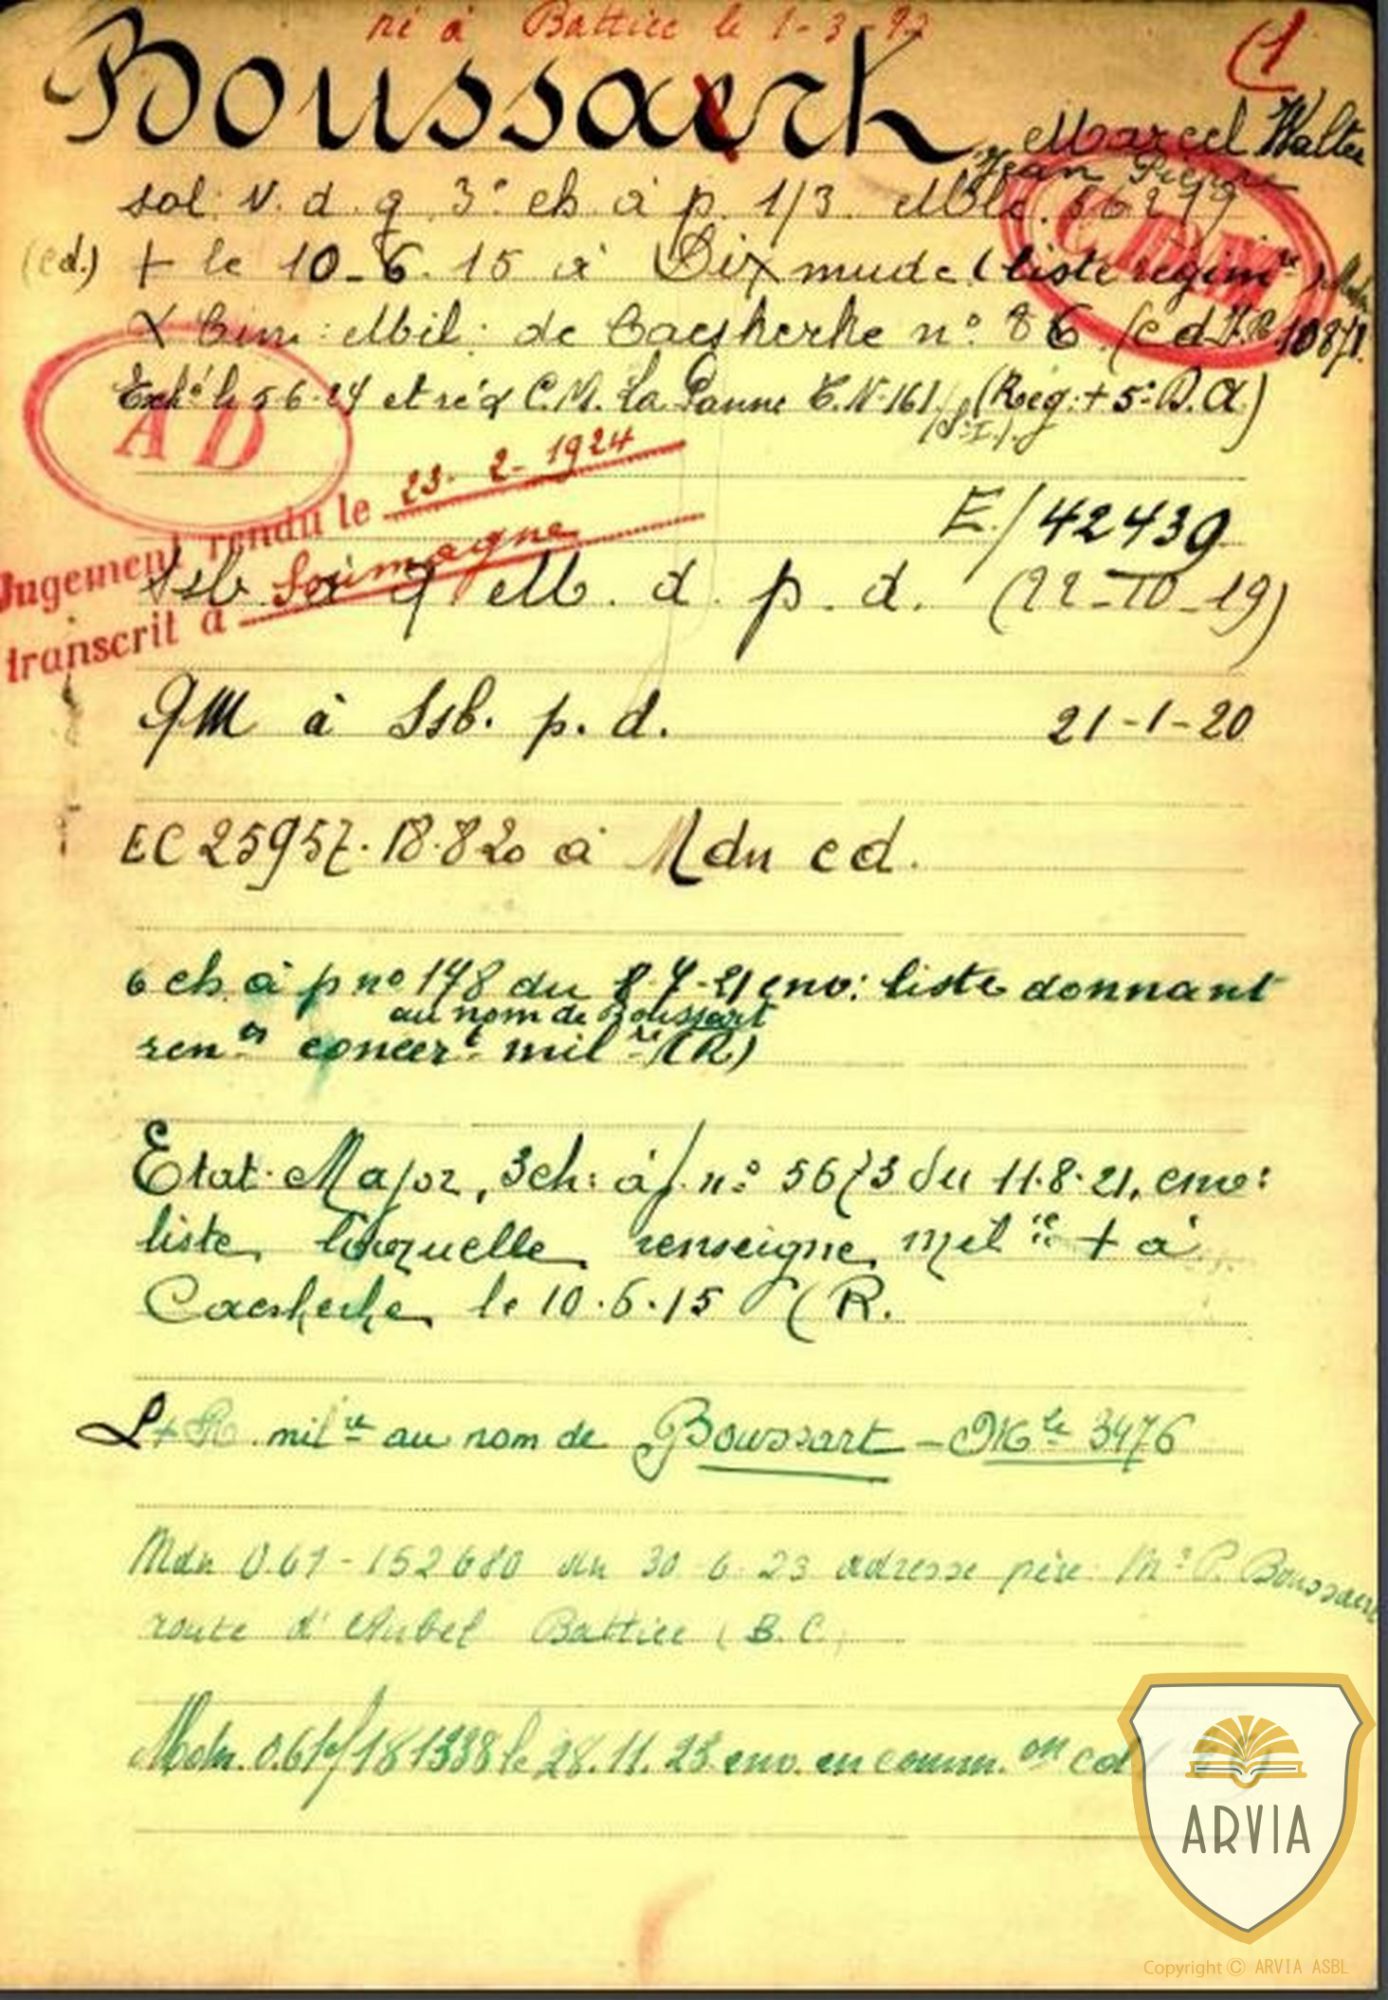 né à Battice le 1-3-92
(1
Boussaerk
Marcel Walter
Jean Pierre
sol: V. d. g 3e ch. à p. 1/3. Mle. 56299
(cd.) + le 10-6.15 à Dixmude (liste régimre)
Cim: Mil: de Caeskerke n° 86 (cd 10871
Exhé le 5 6-24 et ré C.M. La Panne T. N-161 (Rég: + 5e D.A)
CIDM
AD
Jugement rendu le 23-2-1924
transcrit à Soumagne
E/42439
Isb à q M. d. p. d. (22-10-19)
QM à Isb. p. d. 21-1-20
EC 25957. 18.8.20 à Mdn cd.
6 ch. à p n° 178 du 8-7-21 env: liste donnant
au nom de Boussart
rennts concert milre (R)
Etat-Major, 3ch: à p. n° 5673 du 11.8.21, env:
liste laquelle renseigne milre + à
Caeskerke le 10.6.15 (R.
milre au nom de Boussart - Mle 3476
Mdn 0.61-152680 du 30 6 23 adresse père Mr P. Boussaert
route d'Aubel Battice (B.C.)
Mdn. 0.61/181338 le 28.11.23 env. en common cd
ARVIA
Copyright © ARVIA ASBL